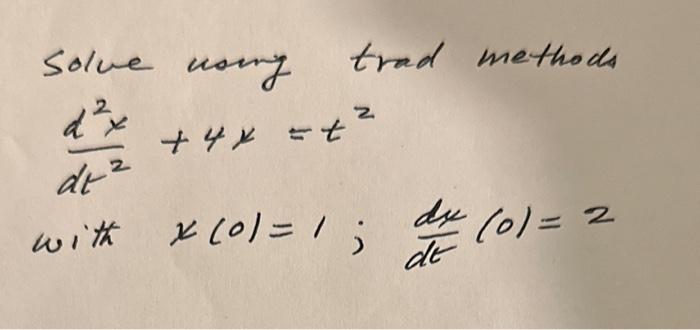 solve using trad methods
d²x/dt² + 4x = t²
with x(0) = 1 ; dx/dt (0) = 2